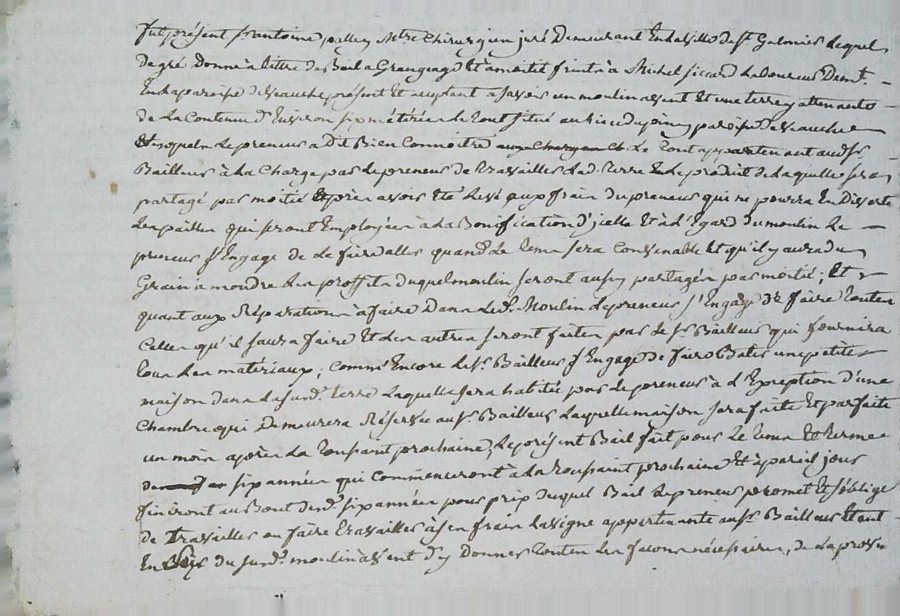 fut présent sr antoine pellen Mtre chirurgien juré Demeurant En la ville de st. Galmier Lequel
de gré Donne à tiltre de Bail a Grangeage Et à moitié fruits à Michel siccard Laboureur Demt.
En la paroisse de Veauche présent Et aceptant a savoir un moulin avent Et une terre y attenante
de La Contenue d'Environ six métérées Le Tout situé au Lieu du join paroisse de veauche
Et Lepreneur a Dit Bien Connoitre Le Tout appartenant aud. sr.
Bailleur à La Charge par Le preneur de travailler Lad. terre En Le produit de Laquelle sera
partagé par moitié Et après avoir Eté Levé aux frais du preneur qui ne pourra En Divertir
Les pailles qui seront Employées à La Bonification d'jcelle Et à L'Egard du moulin Le
preneur s'Engage de Le faire aller quand Le tems sera Convenable Et qu'il y aura du
Grain à moudre Les proffits duquel moulin seront aussy partagés par moitié; Et
quant aux Réparations à faire Dans Led. Moulin Le preneur s'Engage De faire Toutes
Celles qu'il saura faire Et Les autres seront faites par Le sr Bailleur qui fournira
tous Les matériaux; Comme Encore Le sr. Bailleur s'Engage de faire Batir une petite
maison dans La susd. terre Laquelle sera habitée par Le preneur à L'Exception d'une
Chambre qui Demeurera Réservée au sr. Bailleur Laquelle maison sera faite Et parfaite
un mois après La Toussaint prochaine; Le présent Bail fait pour Le tems Et terme
de six années qui Commenceront à La toussaint prochaine Et à pareil jour
finiront au Bout desd. six années pour prix duquel Bail Le preneur promet Et s'oblige
de travailler ou faire travailler à ses frais La vigne appartenante au sr. Bailleur
En du susd. moulin à vent d'y Donner Toutes Les façons nécessaires, de La